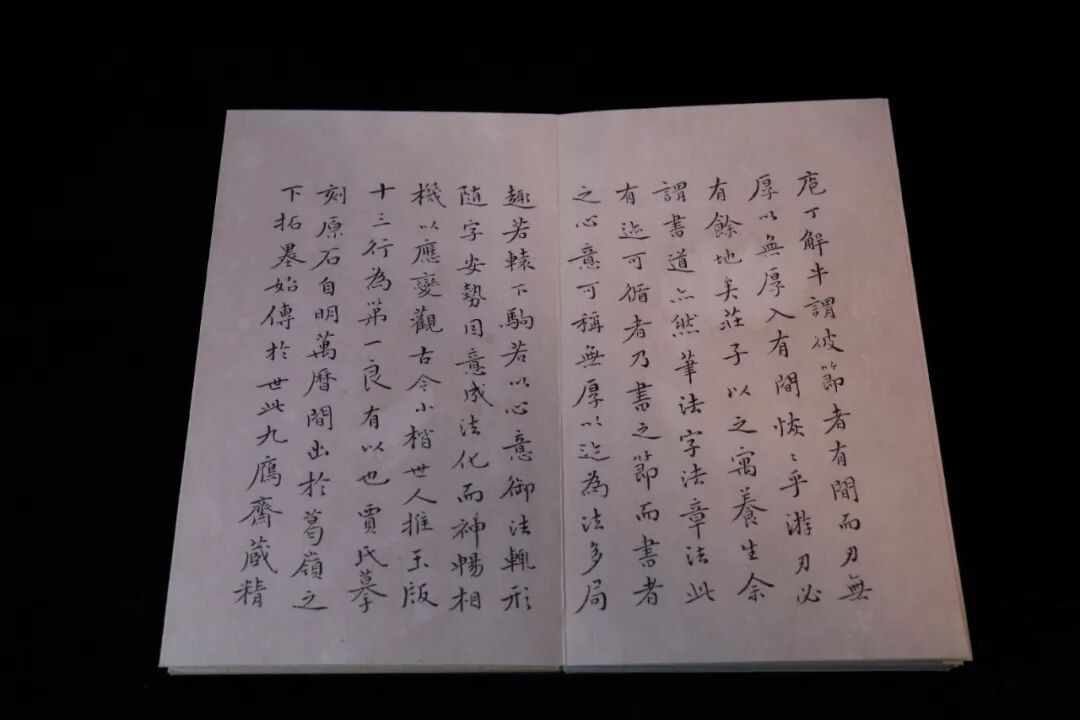 庖丁解牛謂彼節者有間而刃無
厚以無厚入有間恢〻乎游刃必
有餘地矣莊子以之寓養生余
謂書道亦然筆法字法章法此
有迹可循者乃書之節而書者
之心意可稱無厚以迹為法多局
趣若轅下駒若以心意御法輒形
隨字安勢因意成法化而神暢相
機以應變觀古今小楷世人推玉版
十三行為第一良有以也賈氏摹
刻原石自明萬曆間出於葛嶺之
下拓墨始傳於世此九鷹齋藏精